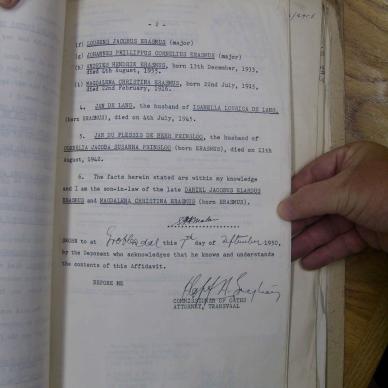 - 2 -
(f) LOURENS JACOBUS ERASMUS (major)
(g) JOHANNES PHILLIPPUS CORNELIUS ERASMUS (major)
(h) ANDRIES HENDRIK ERASMUS, born 13th December, 1933,
died 4th August, 1935.
(i) MAGDALENA CHRISTINA ERASMUS, born 22nd July, 1915,
died 22nd February, 1916.
4. JAN DE LANG, the husband of ISABELLA LOUISA DE LANG,
(born ERASMUS), died on 4th July, 1945.
5. JAN DU PLESSIS DE BEER PRINSLOO, the husband of
CORNELIA JACOBA SUSANNA PRINSLOO (born ERASMUS), died on 11th
August, 1942.
6. The facts herein stated are within my knowledge
and I am the son-in-law of the late DANIEL JACOBUS ELARDUS
ERASMUS and MAGDALENA CHRISTINA ERASMUS (born ERASMUS).
SWORN to at Groblersdal this 7th day of September 1950,
by the Deponent who acknowledges that he knows and understands
the contents of this Affidavit.
BEFORE ME
COMMISSIONER OF OATHS
ATTORNEY, TRANSVAAL